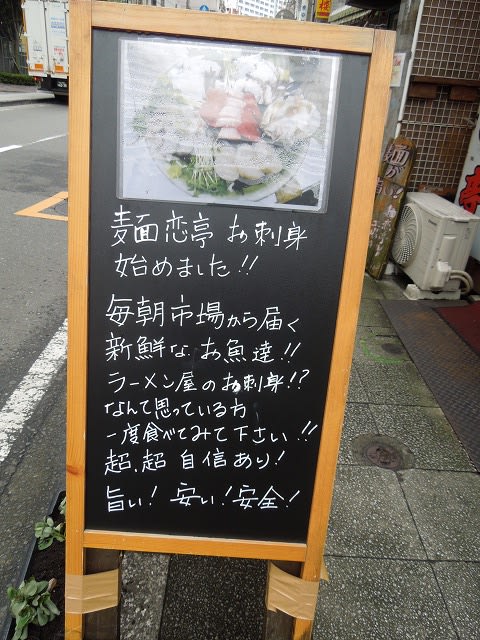 麺恋亭 お刺身
始めました!!
毎朝市場から届く
新鮮な お魚達!!
ラーメン屋のお刺身!?
なんて思っている方
一度食べてみて下さい!!
超、超 自信あり!
旨い! 安い! 安全!
麺が